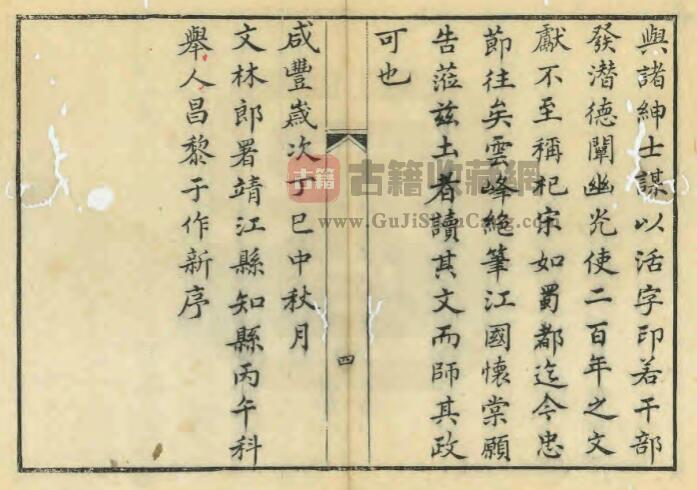 與諸紳士謀以活字印若干部
發潛德闡幽光使二百年之文
獻不至稱杞宋如蜀都迄今忠
節往矣雲峰絕筆江國懷棠願
告蒞茲土者讀其文而師其政
可也
四
咸豐歲次丁巳中秋月
文林郎署靖江縣知縣丙午科
舉人昌黎于作新序
古籍
古籍收藏網
www.GuJiShuCang.com